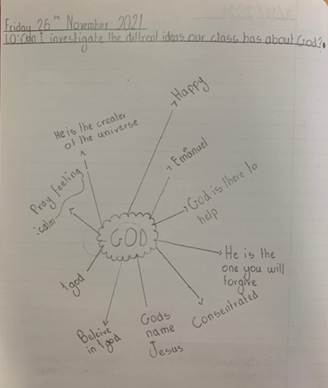 Friday 26th November 2021
LO: Can I investigate the diffrent ideas our class has about God?
Happy
He is the creater
of the universe
Emanuel
Pray feeling
:calm
God is there to
help
GOD
He is the
one you will
forgive
1 god
Consentrated
Beleive
in 1 god
Gods
name
Jesus